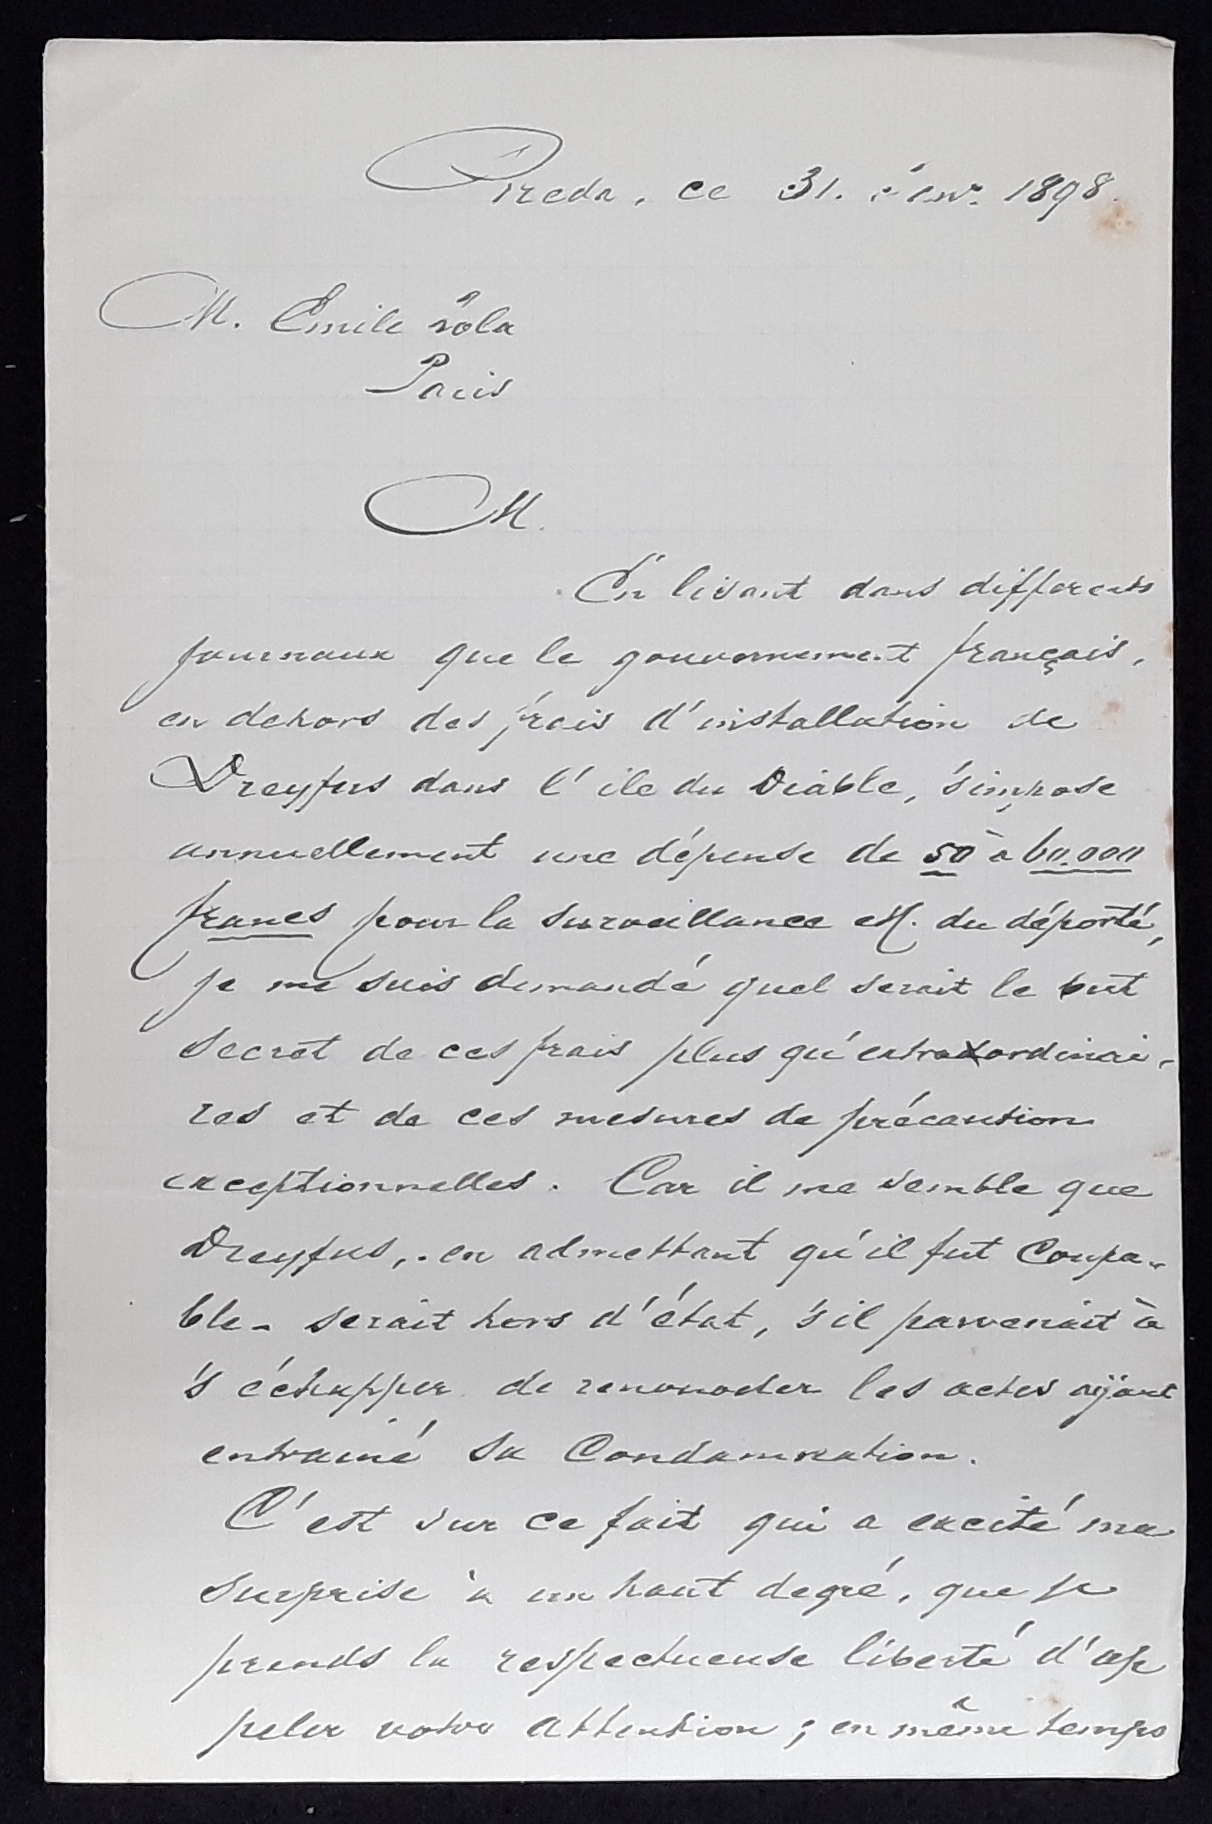 Breda, ce 31. janv. 1898.
M. Emile Zola
Paris
M.
En lisant dans differents
journaux que le gouvernement français,
en dehors des frais d'installation de
Dreyfus dans l'ile du Diable, s'impose
annuellement une dépense de 50 à 60.000
francs pour la surveillance etc. du déporté,
je me suis demandé quel serait le but
secret de ces frais plus qu'extraordinai-
res et de ces mesures de précaution
exceptionnelles. Car il me semble que
Dreyfus, - en admettant qu'il fut coupa-
ble - serait hors d'état, s'il parvenait à
s'échapper de renouveler les actes ayant
entrainé sa condamnation.
C'est sur ce fait qui a excité ma
surprise à un haut degré, que je
prends la respectueuse liberté d'ap
peler votre attention ; en même temps